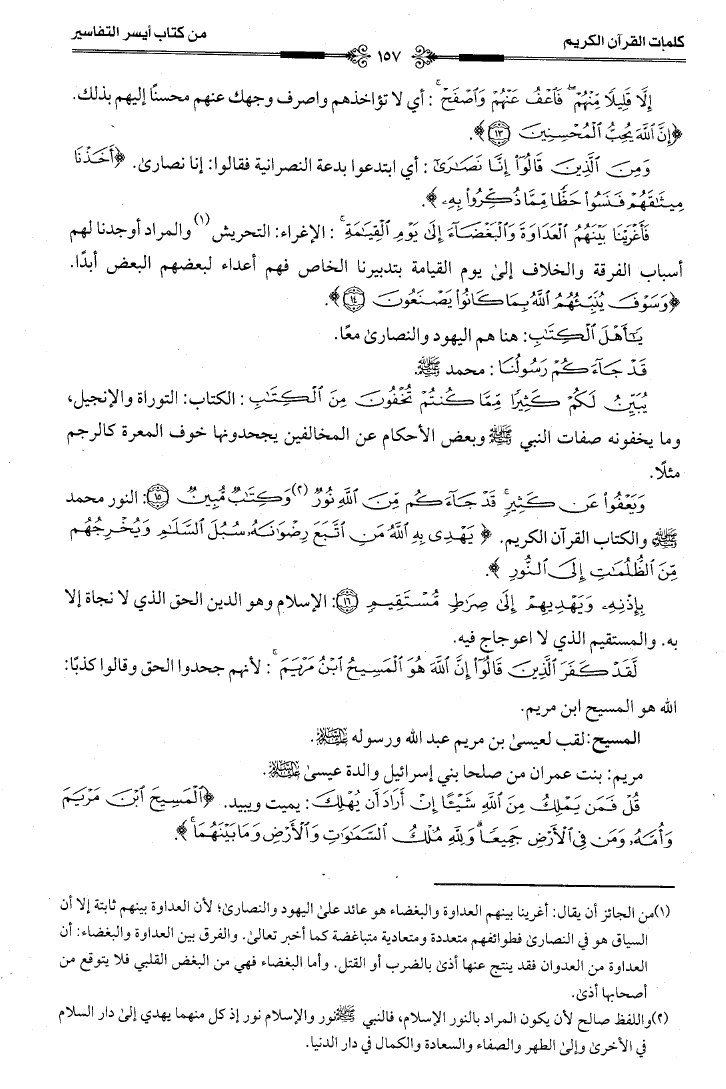 كلمات القرآن الكريم ١٥٧ من كتاب أيسر التفاسير
إِلَّا قَلِيلًا مِّنْهُمْ ۖ فَاعْفُ عَنْهُمْ وَاصْفَحْ ۚ : أي لا تؤاخذهم واصرف وجهك عنهم محسنًا إليهم بذلك.
﴿إِنَّ اللَّهَ يُحِبُّ الْمُحْسِنِينَ ١٣﴾.
وَمِنَ الَّذِينَ قَالُوا إِنَّا نَصَارَىٰ : أي ابتدعوا بدعة النصرانية فقالوا: إنا نصارىٰ. ﴿أَخَذْنَا
مِيثَاقَهُمْ فَنَسُوا حَظًّا مِّمَّا ذُكِّرُوا بِهِ﴾.
فَأَغْرَيْنَا بَيْنَهُمُ الْعَدَاوَةَ وَالْبَغْضَاءَ إِلَىٰ يَوْمِ الْقِيَامَةِ ۚ : الإغراء: التحريش(١) والمراد أوجدنا لهم
أسباب الفرقة والخلاف إلىٰ يوم القيامة بتدبيرنا الخاص فهم أعداء لبعضهم البعض أبدًا.
﴿وَسَوْفَ يُنَبِّئُهُمُ اللَّهُ بِمَا كَانُوا يَصْنَعُونَ ١٤﴾.
يَا أَهْلَ الْكِتَابِ: هنا هم اليهود والنصارىٰ معًا.
قَدْ جَاءَكُمْ رَسُولُنَا : محمد ﷺ.
يُبَيِّنُ لَكُمْ كَثِيرًا مِّمَّا كُنتُمْ تُخْفُونَ مِنَ الْكِتَابِ : الكتاب: التوراة والإنجيل،
وما يخفونه صفات النبي ﷺ وبعض الأحكام عن المخالفين يجحدونها خوف المعرة كالرجم
مثلًا.
وَيَعْفُوا عَن كَثِيرٍ ۚ قَدْ جَاءَكُم مِّنَ اللَّهِ نُورٌ (٢) وَكِتَابٌ مُّبِينٌ ١٥: النور محمد
ﷺ والكتاب القرآن الكريم. ﴿يَهْدِي بِهِ اللَّهُ مَنِ اتَّبَعَ رِضْوَانَهُ سُبُلَ السَّلَامِ وَيُخْرِجُهُم
مِّنَ الظُّلُمَاتِ إِلَى النُّورِ﴾.
بِإِذْنِهِ وَيَهْدِيهِمْ إِلَىٰ صِرَاطٍ مُّسْتَقِيمٍ ١٦: الإسلام وهو الدين الحق الذي لا نجاة إلا
به. والمستقيم الذي لا اعوجاج فيه.
لَقَدْ كَفَرَ الَّذِينَ قَالُوا إِنَّ اللَّهَ هُوَ الْمَسِيحُ ابْنُ مَرْيَمَ ۚ : لأنهم جحدوا الحق وقالوا كذبًا:
الله هو المسيح ابن مريم.
المسيح: لقب لعيسىٰ بن مريم عبد الله ورسوله عليه السلام.
مريم: بنت عمران من صلحا بني إسرائيل والدة عيسىٰ عليه السلام.
قُلْ فَمَن يَمْلِكُ مِنَ اللَّهِ شَيْئًا إِنْ أَرَادَ أَن يُهْلِكَ: يميت ويبيد. ﴿الْمَسِيحَ ابْنَ مَرْيَمَ
وَأُمَّهُ وَمَن فِي الْأَرْضِ جَمِيعًا ۗ وَلِلَّهِ مُلْكُ السَّمَاوَاتِ وَالْأَرْضِ وَمَا بَيْنَهُمَا ۚ﴾.
(١) من الجائز أن يقال: أغرينا بينهم العداوة والبغضاء هو عائد علىٰ اليهود والنصارىٰ؛ لأن العداوة بينهم ثابتة إلا أن
السياق هو في النصارىٰ فطوائفهم متعددة ومتعادية متباغضة كما أخبر تعالىٰ. والفرق بين العداوة والبغضاء: أن
العداوة من العدوان فقد ينتج عنها أذىٰ بالضرب أو القتل. وأما البغضاء فهي من البغض القلبي فلا يتوقع من
أصحابها أذىٰ.
(٢) واللفظ صالح لأن يكون المراد بالنور الإسلام، فالنبي ﷺ نور والإسلام نور إذ كل منهما يهدي إلىٰ دار السلام
في الأخرىٰ وإلىٰ الطهر والصفاء والسعادة والكمال في دار الدنيا.